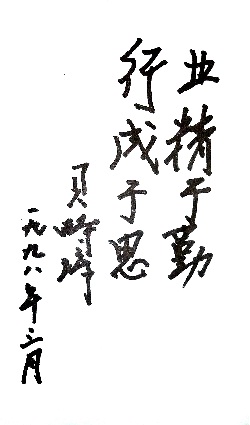 业精于勤
行成于思
贝時璋
一九九八年三月